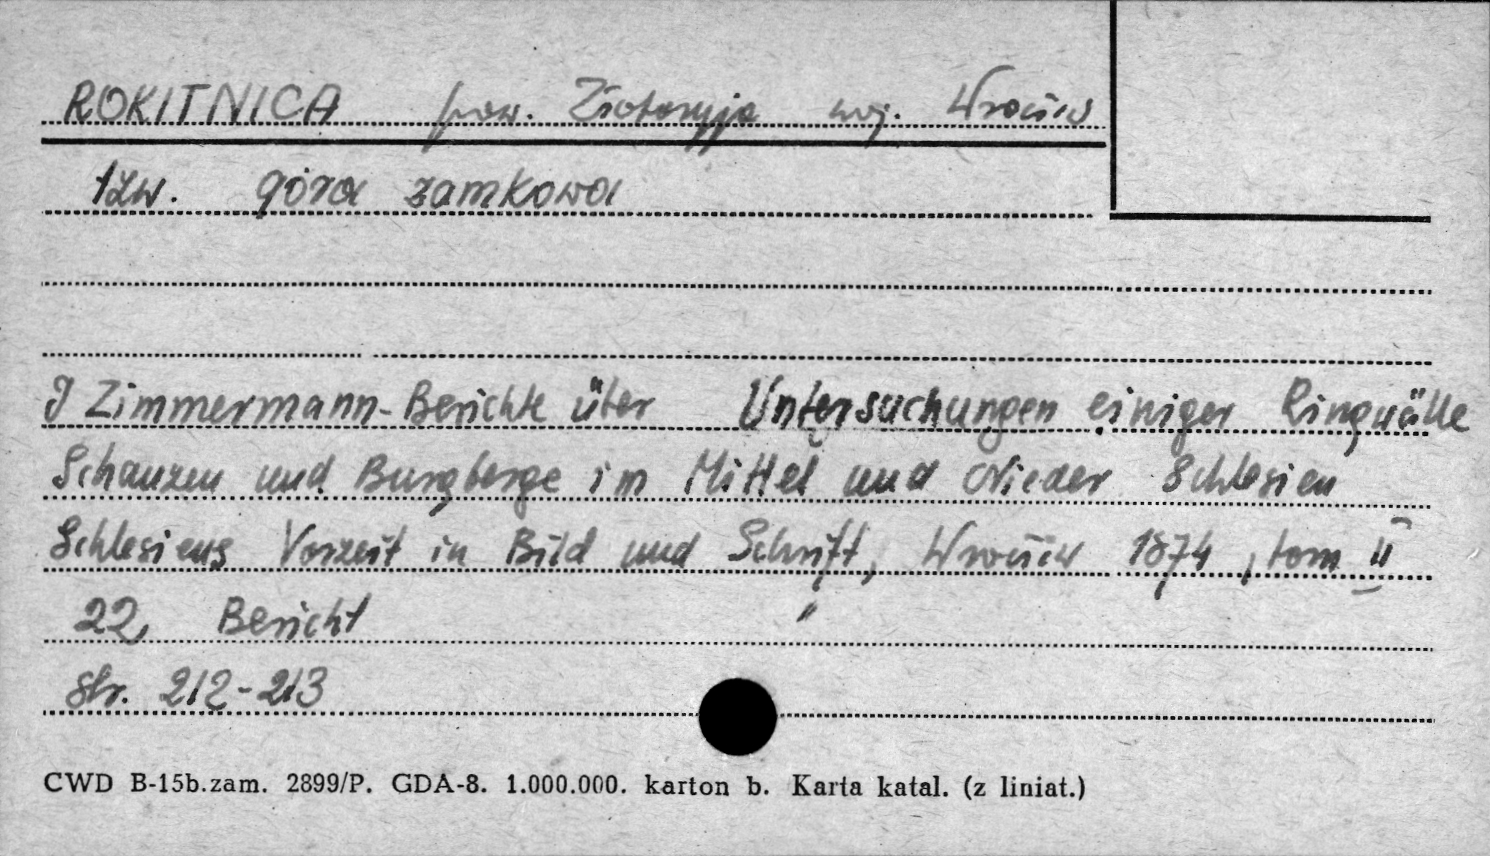 ROKITNICA pow. Złotoryja woj. Wrocław
tzw. góra zamkowa
J Zimmermann - Berichte über Untersuchungen einiger Ringwälle
Schanzen und Burgberge im Mittel und Nieder Schlesien
Schlesiens Vorzeit in Bild und Schrift, Wrocław 1874, tom II
22, Bericht "
str. 212-213
CWD B-15b.zam. 2899/P. GDA-8. 1.000.000. karton b. Karta katal. (z liniat.)